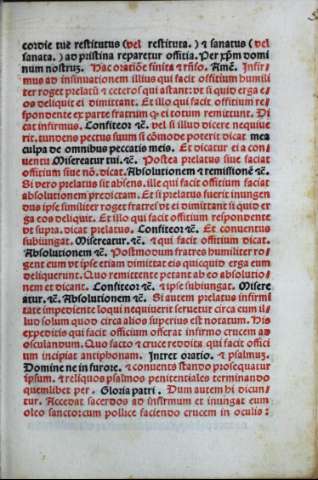 cordie tue restitutus (vel restituta.) ⁊ sanatus (vel
sanata.) ad pristina reparetur offitia. Per xp̄m domi
num nostrum. Hac oratiōe finita ⁊ rñso. Amē. Infir
mus ad insinuationem illius qui facit offitium humili
ter roget prelatū ⁊ ceteros qui astant: vt si quid erga e/
os deliquit ei dimittant. Et illo qui facit offitium re/
spondente ex parte fratrum ꝙ ei totum remittunt. Di
cat infirmus. Confiteor ⁊c̄. vel si illud dicere nequiue
rit. tundens pectus suum si cōmode poterit dicat. mea
culpa de omnibus peccatis meis. Et dicatur ei a con
uentu Misereatur tui. ⁊c̄. Postea prelatus siue faciat
offitium siue nō. dicat. Absolutionem ⁊ remissionē ⁊c̄.
Si vero prelatus sit absens. ille qui facit offitium faciat
absolutionem predictam. Et si prelatus fuerit infirmus
ipse similiter roget fratres vt ei dimittant si quid er
ga eos deliquit. Et illo qui facit offitium respondente
vt supra. dicat prelatus. Confiteor ⁊c̄. Et conuentus
subiungat. Misereatur. ⁊c̄. ⁊ qui facit offitium dicat.
Absolutionem ⁊c̄. Postmodum fratres humiliter ro/
gent eum vt ipse etiam dimittat eis quicquid erga eum
deliquerunt. Quo remittente petant ab eo absolutio/
nem et dicant. Confiteor ⁊c̄. ⁊ ipse subiungat. Misere
atur. ⁊c̄. Absolutionem ⁊c̄. Si autem prelatus infirmi
tate impediente loqui nequiuerit seruetur circa eum il/
lud solum quod circa alios superius est notatum. His
expeditis qui facit officium offerat infirmo crucem ad
osculandum. Quo facto ⁊ cruce reddita qui facit offici
um incipiat antiphonam. Intret oratio. ⁊ psalmū.
Domine ne in furore. ⁊ conuentus stando prosequatur
ipsum. ⁊ reliquos psalmos penitentiales terminando
quemlibet per. Gloria patri. Dum autem hi dicun
tur. Accedat sacerdos ad infirmum et inungat eum
oleo sanctorum pollice faciendo crucem in oculis: